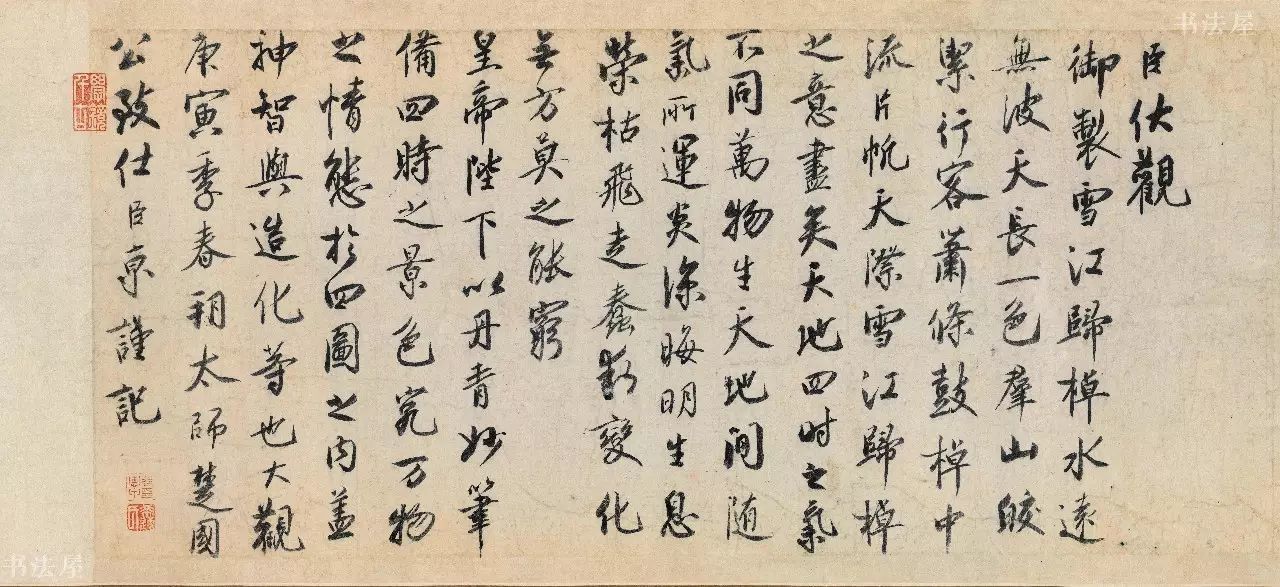 臣伏觀
御製雪江歸棹水遠
無波天長一色羣山皎
潔行客蕭條鼓棹中
流片帆天際雪江歸棹
之意盡矣天地四时之氣
不同萬物生天地间随
氣所運炎凉晦明生息
榮枯飛走蠢動變化
無方莫之能窮
皇帝陛下以丹青妙筆
備四時之景色究万物
之情態於四圖之内盖
神智與造化等也大觀
庚寅季春朔太師楚國
公致仕臣京謹記
书法屋
书法屋